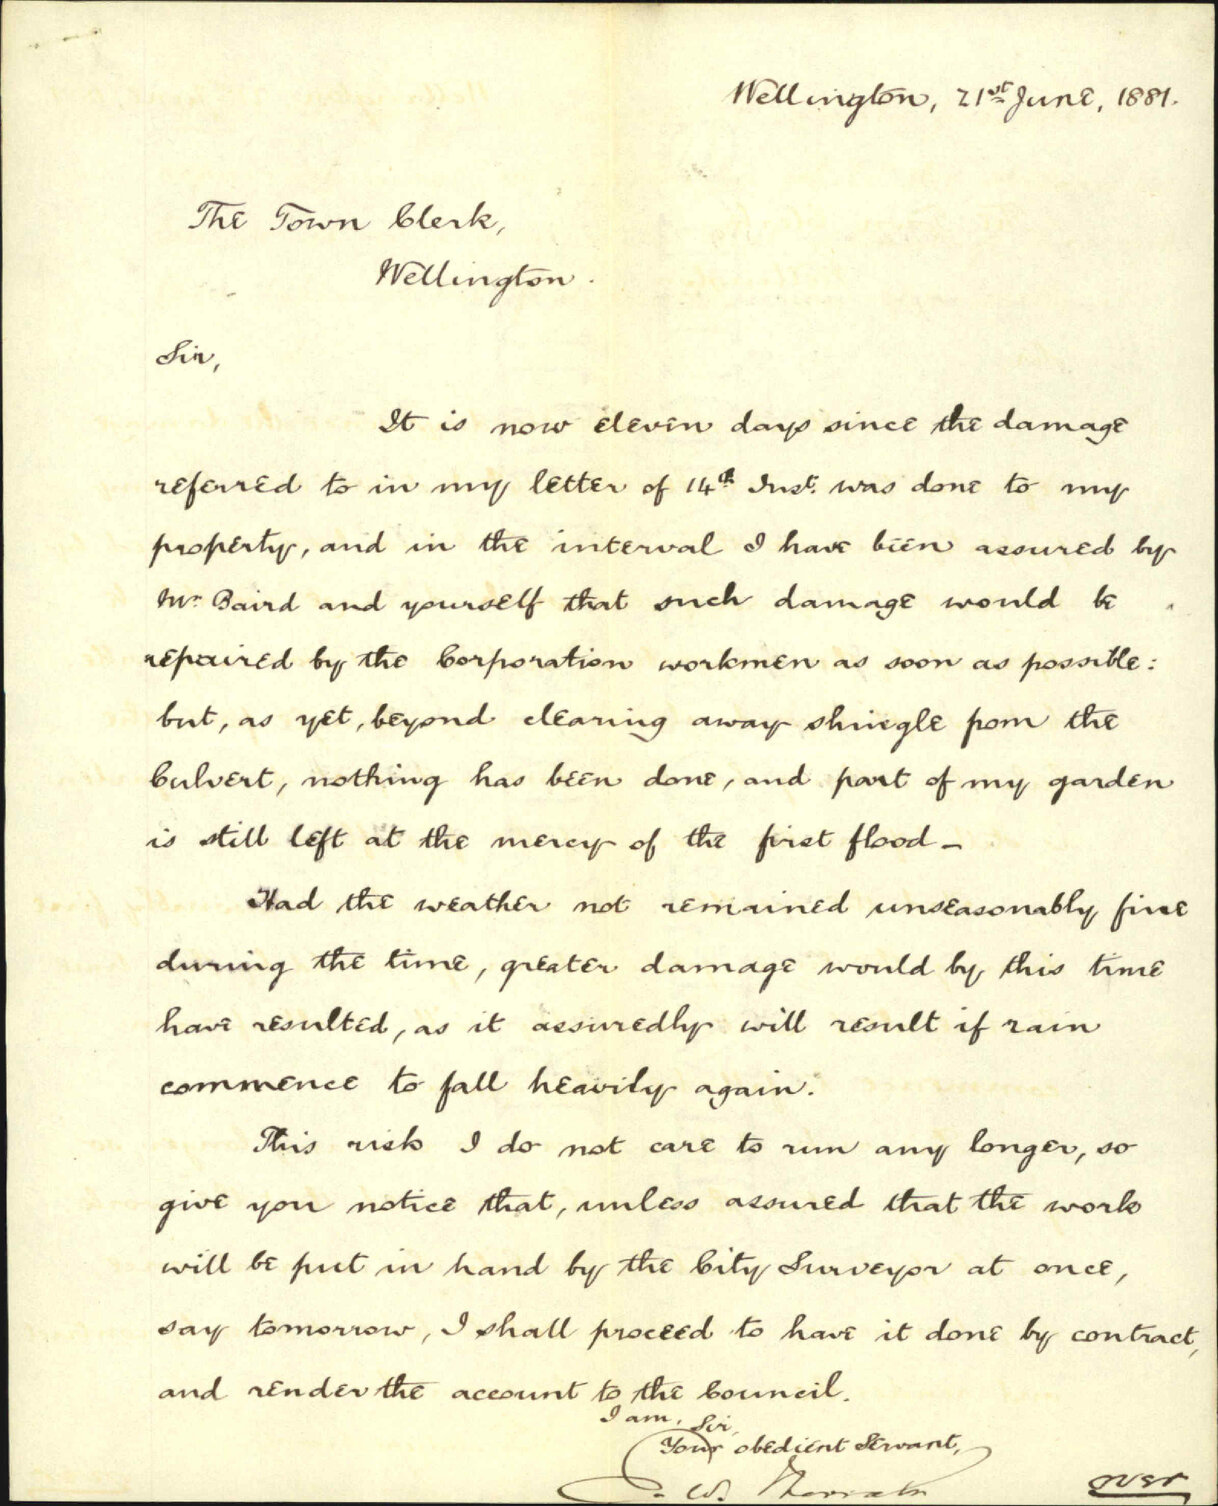 Wellington, 21st June, 1881.
The Town Clerk,
Wellington.
Sir,
It is now eleven days since the damage
referred to in my letter of 14th Inst. was done to my
property, and in the interval I have been assured by
Mr Baird and yourself that such damage would be
repaired by the Corporation workmen as soon as possible:
but, as yet, beyond clearing away shingle from the
Culvert, nothing has been done, and part of my garden
is still left at the mercy of the first flood -
Had the weather not remained unseasonably fine
during the time, greater damage would by this time
have resulted, as it assuredly will result if rain
commence to fall heavily again.
This risk I do not care to run any longer, so
give you notice that, unless assured that the work
will be put in hand by the City Surveyor at once,
say tomorrow, I shall proceed to have it done by contract,
and render the account to the Council.
I am, Sir,
Your obedient Servant,
W.
over